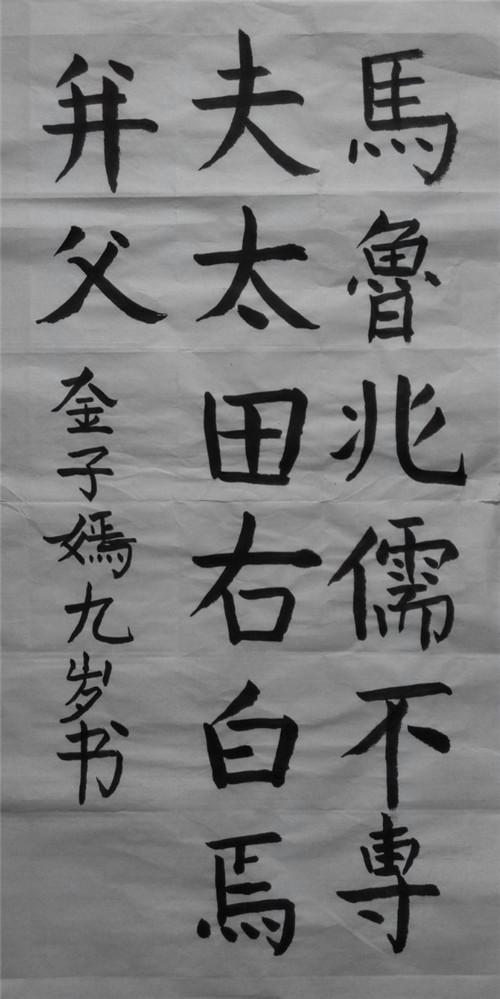 馬魯兆儒不専
夫太田右白焉
并父
金子嫣九岁书